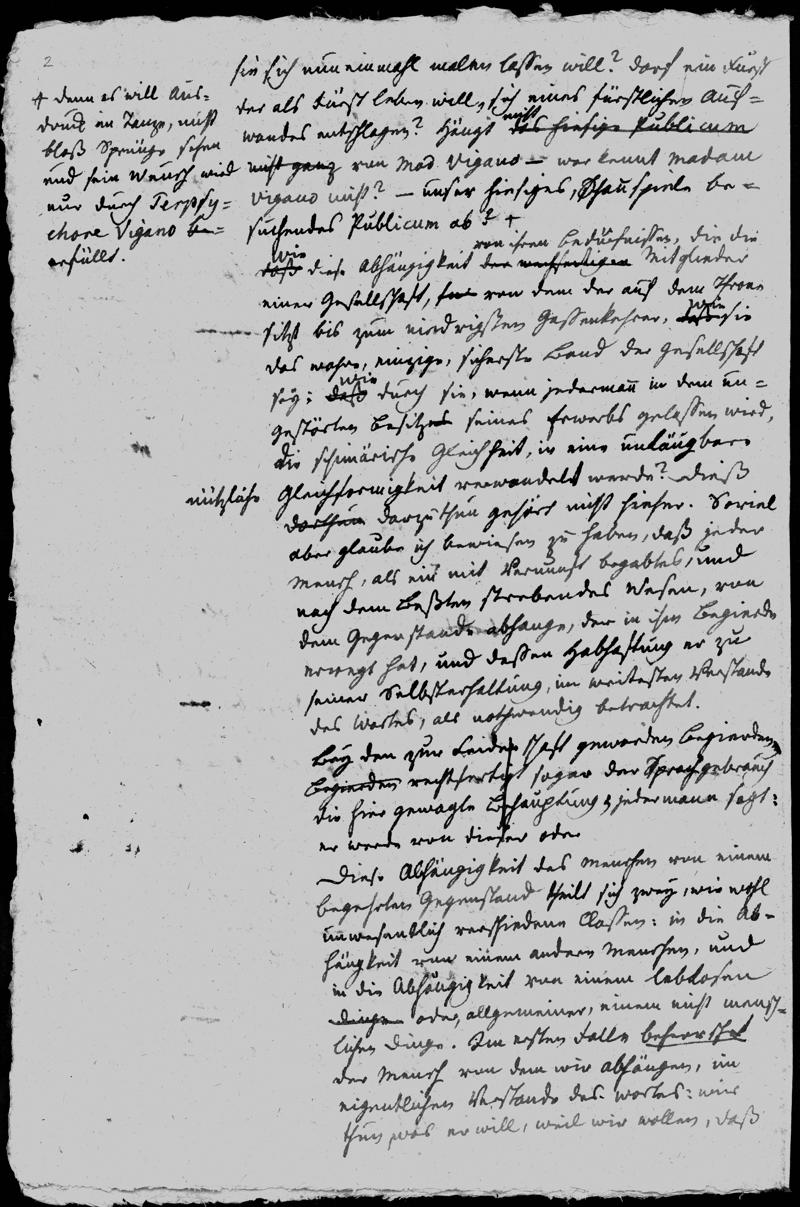 2
sie sich nun einmahl malen lassen will? darf ein Fürst
der als Fürst leben will, sich eines fürstlichen Auf=
wandes entschlagen? Hängt nicht das hiesige Publicum
nicht ganz von Mad. Vigano — wer kennt Madam
Vigano nicht? — unser hiesiges, Schauspiele be=
suchendes Publicum ab? +
+ denn es will Aus=
druck im Tanze, nicht
bloß Sprünge sehen
und sein Wunsch wird
nur durch Terpsy=
chore Vigano be=
erfüllt.
wie daß diese Abhängigkeit von ihren Bedürfnissen, die die der wechseitigen Mitglieder
einer Gesellschaft, von dem der auf dem Throne
sitzt bis zum niedrigsten Gassenkehrer, wie sie
das wahre, einzige, sicherste Band der Gesellschaft
sey; wie daß durch sie, wenn jedermañ in dem un=
gestörten Besitze seines Erwerbs gelassen wird,
die schimärische Gleichheit, in eine unläugbare
nützliche
Gleichformigkeit verwandelt werde? dieß
darthun darzuthun gehört nicht hieher. Soviel
aber glaube ich bewiesen zu haben, daß jeder
Mensch, als ein mit Vernunft begabtes, und
nach dem Beßten strebendes Wesen, von
dem Gegenstande abhange, der in ihm Begierde
erregt hat, und dessen Habhaftung er zu
seiner Selbsterhaltung, im weitesten Verstande
des Wortes, als nothwendig betrachtet.
Bey den zur Leidenschaft geworden Begierden,
Begierden rechtfertigt sogar der Sprachgebrauch
die hier gewagte Behauptung; jedermann sagt:
er werde von dieser oder
Diese Abhängigkeit des Menschen von einem
begehrten Gegenstand theilt sich zwey, wie wohl
unwesentlich verschiedene Classen: in die Ab=
hängkeit von einem andern Menschen, und
in die Abhängigkeit von einem leblosen
Dinge oder, allgemeiner, einem nicht mensch=
lichen Dinge. Im ersten Falle beherrschet
der Mensch von dem wir abhängen, im
eigentlichen Verstande des Wortes: wir
thun was er will, weil wir wollen, daß